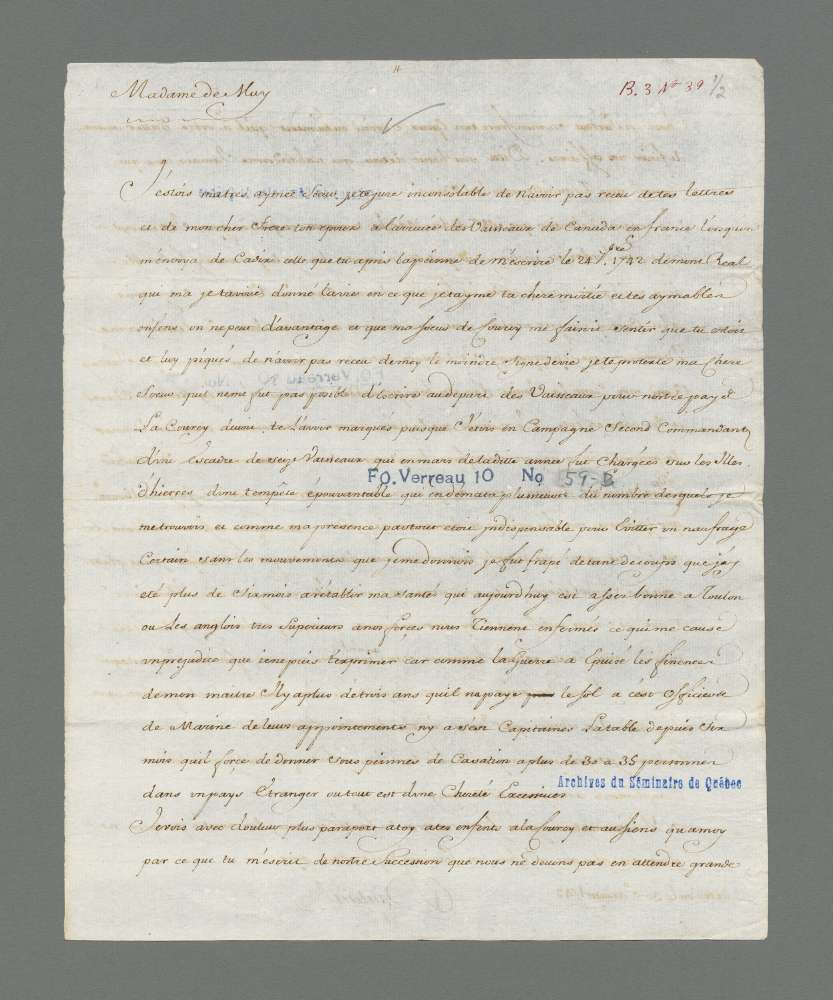 Madame de Muy
B. 3 No 39 1/2
J'estois ma tres aymée Soeur je te jure inconsolable de n'avoir pas receu de tes lettres
et de mon cher frere ton epoux a l'arivée des Vaisseaux de Canada en france lorsqu'on
m'envoya de Cadix celle que tu a pris la peinne de m'escrire le 24 7bre 1742 de mont Real
qui ma je t'avoüe donné la vie en ce que je t'ayme ta chere moitié et tes aymables
enfens on ne peut d'avantage et que ma soeur de Courcy me faisoit sentir que tu estois
et luy piqués de n'avoir pas receu de moy le moindre signe de vie je te proteste ma chere
Soeur quil ne me fut pas posible d'escrire au depart des Vaisseaux pour nostre pay et
La Courcy deüne te l'avoir marqués puisque J'etois en Campagne Second Commandant
d'une Escadre de seize Vaisseaux qui en mars de laditte année fut Chargées sous les Illes
d'hierres d'une tempête épouvantable qui en demata plusieurs du nombre desquels je
me trouvois et comme ma presence partout etoit indispensable pour Eviter un naufrage
Certain dans les mouvements que je me donnois je fut frapé de tant de coups que j'ay
eté plus de six mois a rétablir ma santé qui aujourdhuy est assez bonne a Toulon
ou Les anglois tres Superieurs a nos forces nous Tiennent enfermés ce qui me cause
un prejudice que je ne puis t'exprimer car comme la Guerre a Epuisé les finences
de mon maitre Il y a plus de trois ans quil na payé le sol a c'est Officiers
de Marine de leurs appointements ny a s'est Capitaines La table depuis Six
mois quil force de donner sous peinnes de Casation a plus de 30 a 35 personnes
dans un pays Etranger ou tout est d'une Chereté Excessives
Je vois avec douleur plus par aport a toy a tes enfents a la Courcy et au siens qu'a moy
par ce que tu m'escrit de nostre Succession que nous ne devons pas en attendre grande
FO. Verreau 10 No 59-B
Archives du Séminaire de Québec